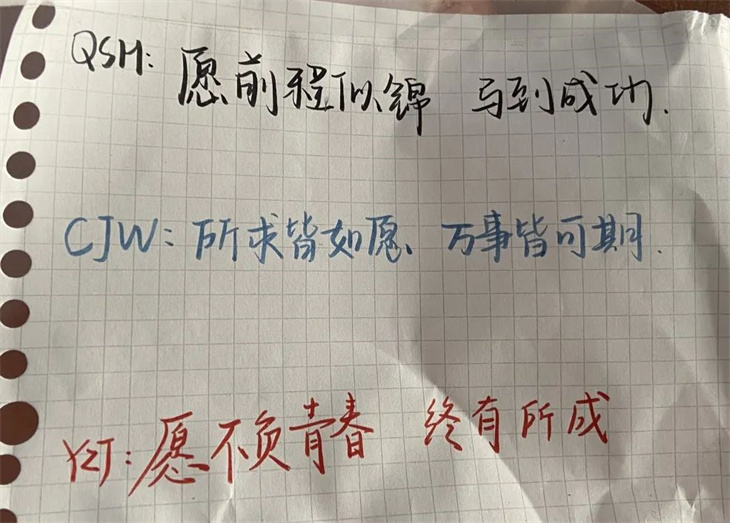 QSH: 愿前程似锦 马到成功.
CJW: 所求皆如愿、万事皆可期.
YZJ: 愿不负青春 终有所成